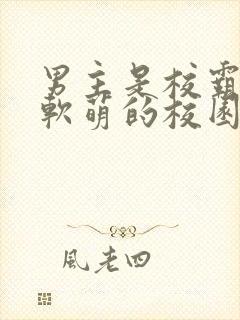 男主是校霸
軟萌的校園
風老四